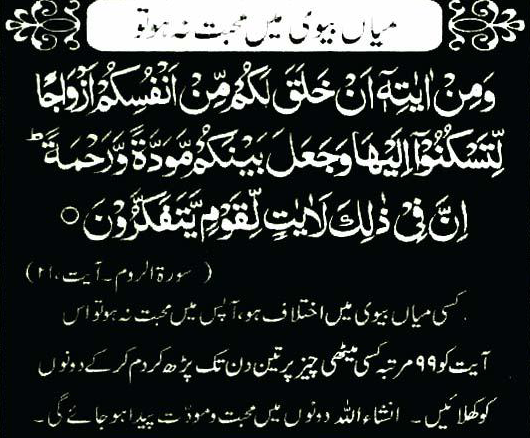 میاں بیوی میں محبت نہ ہو تو
وَمِنْ اٰيٰتِهٖٓ اَنْ خَلَقَ لَكُمْ مِّنْ اَنْفُسِكُمْ اَزْوَاجًا
لِّتَسْكُنُوْٓا اِلَيْهَا وَجَعَلَ بَيْنَكُمْ مَّوَدَّةً وَّرَحْمَةً ؕ
اِنَّ فِيْ ذٰلِكَ لَاٰيٰتٍ لِّقَوْمٍ يَّتَفَكَّرُوْنَ ○
( سورۃ الروم۔ آیت، ۲۱ )
کسی میاں بیوی میں اختلاف ہو، آپس میں محبت نہ ہو تو اس
آیت کو ۹۹ مرتبہ کسی میٹھی چیز پر تین دن تک پڑھ کر دم کر کے دونوں
کو کھلائیں۔ انشاء اللہ دونوں میں محبت و مودّت پیدا ہو جائے گی۔